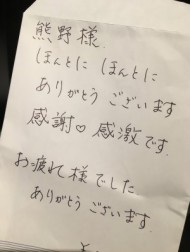 熊野様
ほんとに ほんとに
ありがとう ございます
感謝♡感激です.
お疲れ様でした
ありがとう ございます.